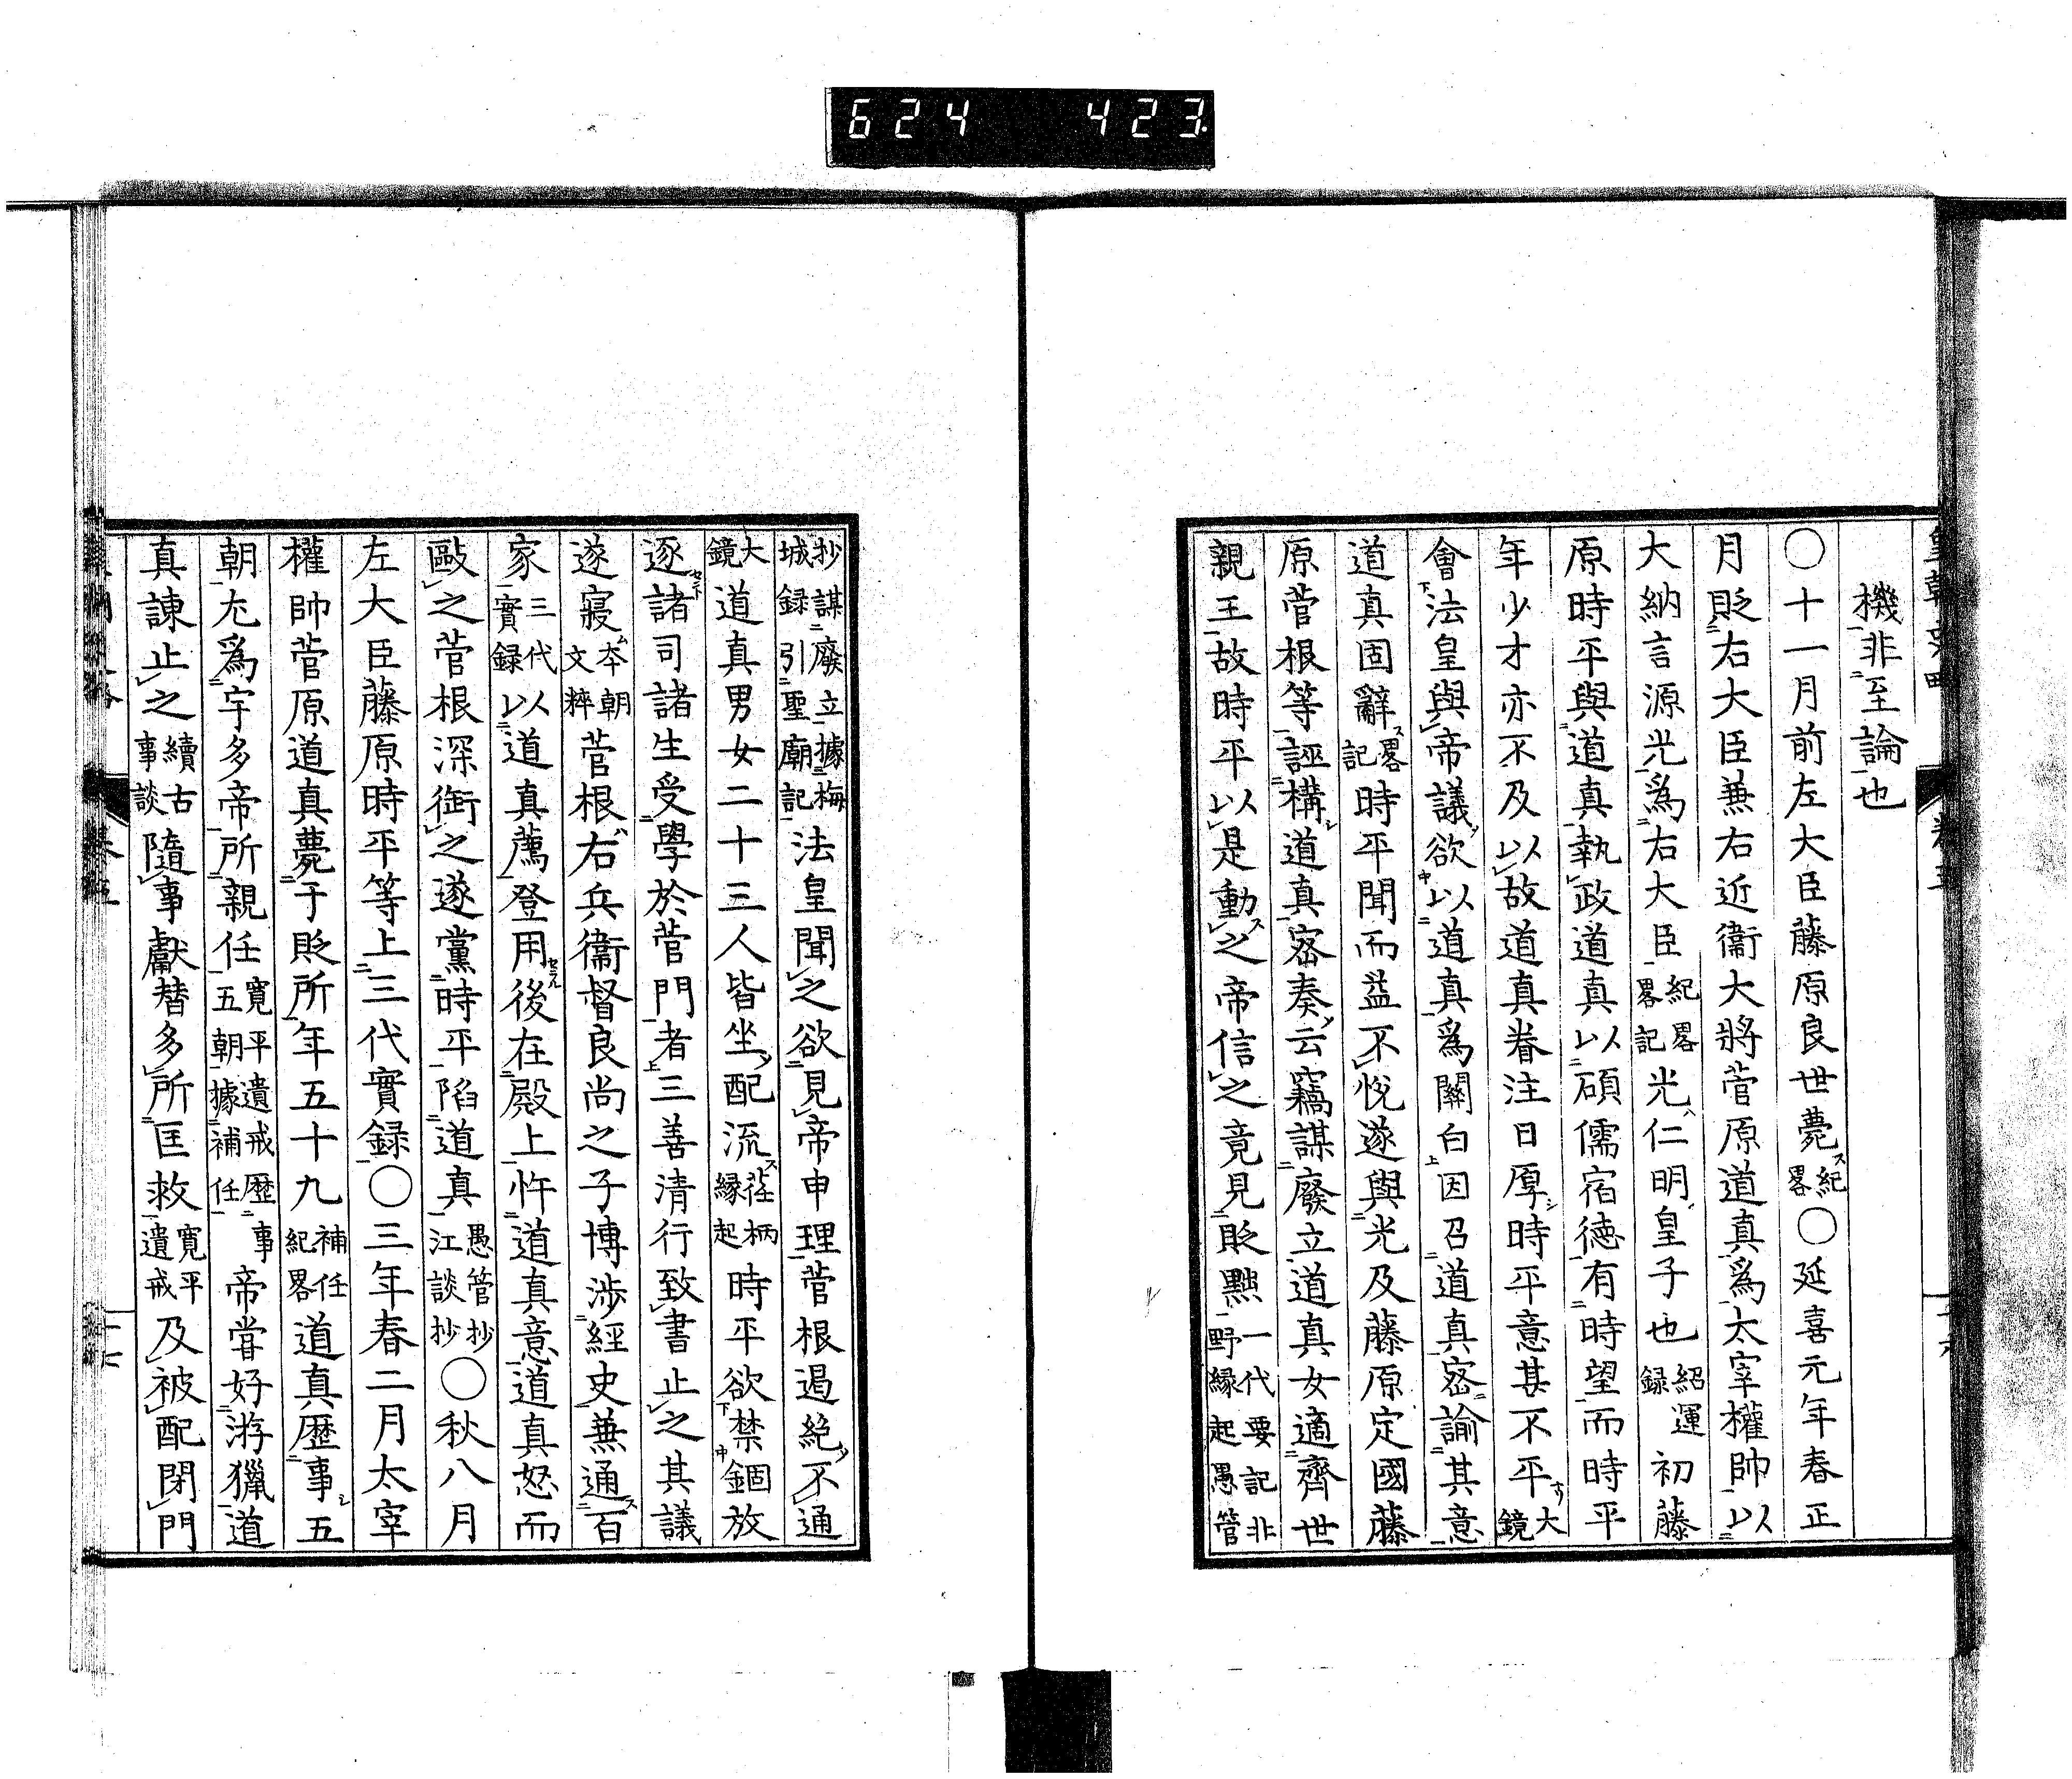 624 423
機非至論也
〇十一月前左大臣藤原良世薨紀畧〇延喜元年春正
月貶右大臣兼右近衞大將菅原道真爲太宰權帥以
大納言源光爲右大臣紀畧畧記光仁明皇子也紹運録初藤
原時平與道真執政道真以碩儒宿徳有時望而時平
年少才亦不及以故道真眷注日厚時平意甚不平大鏡
會法皇與帝議欲以道真爲關白因召道真密諭其意
道真固辭畧記時平聞而益不悅遂與光及藤原定國藤
原菅根等誣構道真密奏云竊謀廢立道真女適齊世
親王故時平以是動之帝信之竟見貶黜一代要記非野縁起愚管
抄謀廢立據梅城録引聖廟記法皇聞之欲見帝申理菅根遏絶不通
大鏡道真男女二十三人皆坐配流荏柄縁起時平欲禁錮放
逐諸司諸生受學於菅門者三善清行致書止之其議
遂寢本朝文粹菅根右兵衞督良尚之子博涉經史兼通百
家三代實録以道真薦登用後在殿上忤道真意道真怒而
毆之菅根深銜之遂黨時平陷道真愚管抄江談抄〇秋八月
左大臣藤原時平等上三代實録〇三年春二月太宰
權帥菅原道真薨于貶所年五十九補任紀畧道真歷事五
朝尤爲宇多帝所親任寬平遺戒歷事五朝據補任帝甞好游獵道
真諌止之續古事談隨事獻替多所匡救寬平遺戒及被配閉門